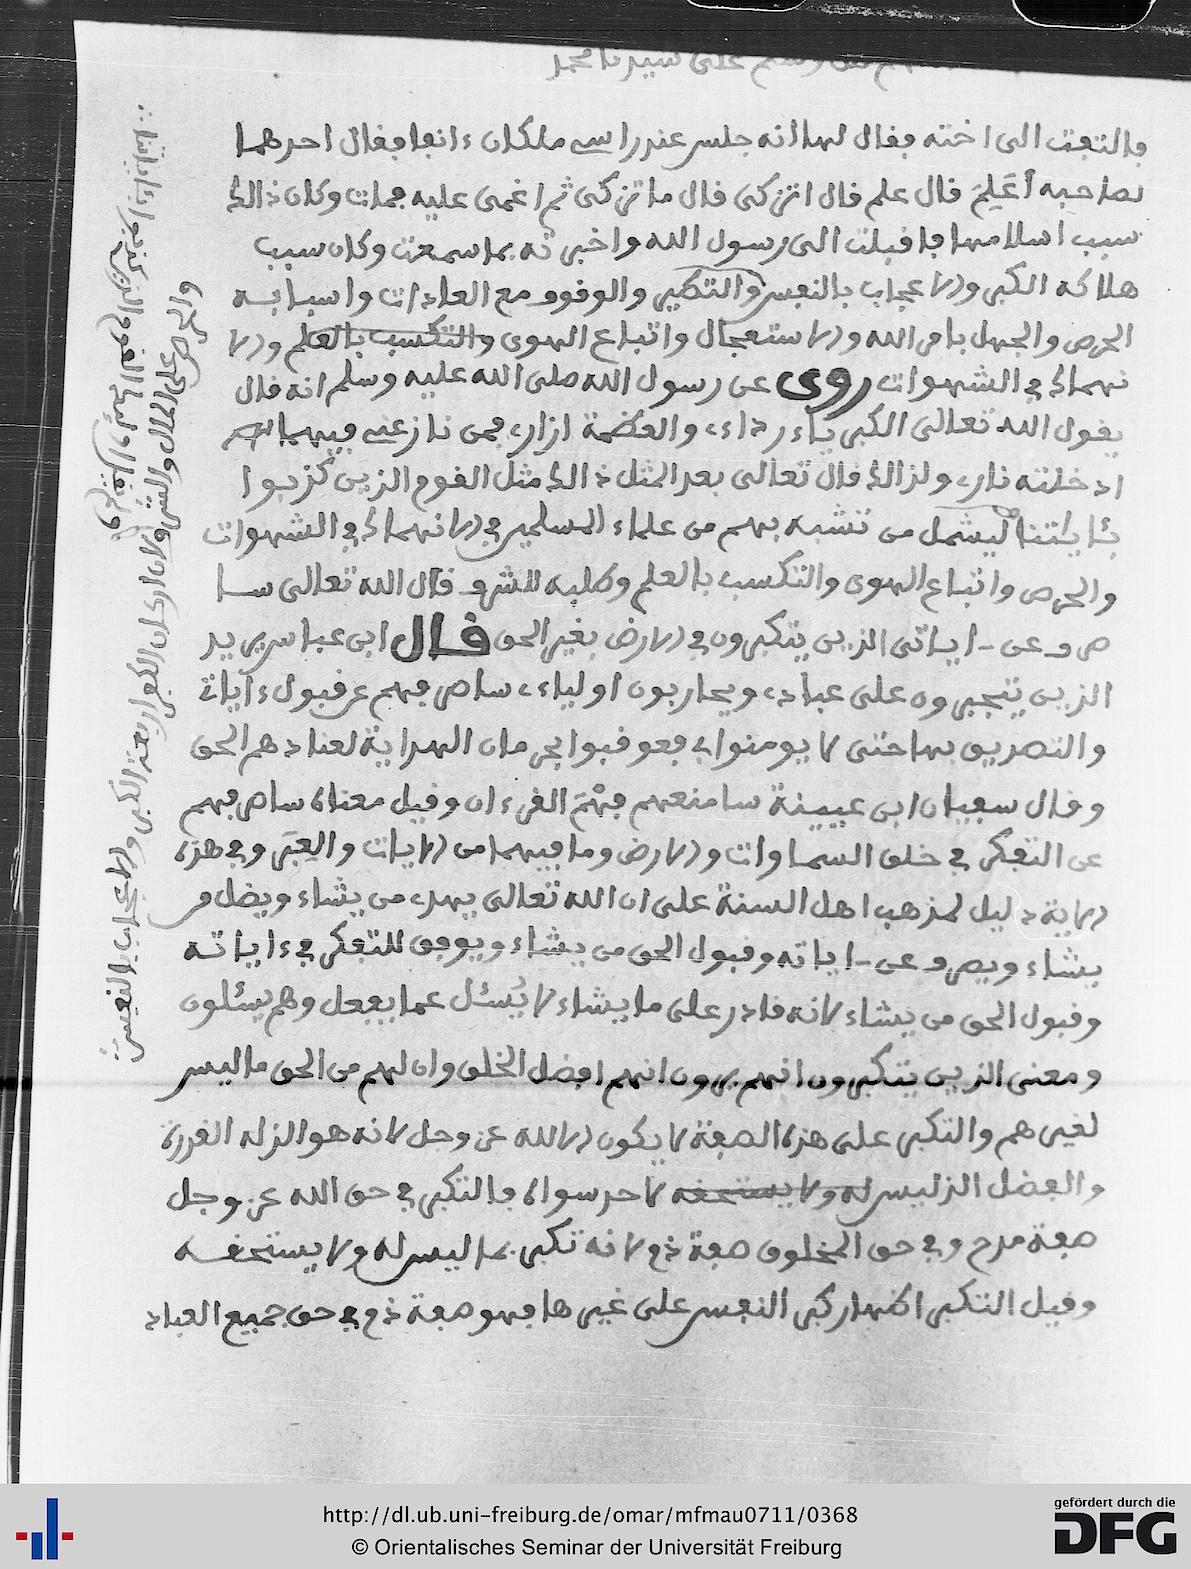 اللهم صل وسلم على سيدنا محمد
فالتفت الى اخته فقال لها انه جلس عند راسي ملكان ءانفا فقال احدهما
لصاحبه أعَلِمَ قال علم قال اتزكى قال ما تزكى ثم اغمى عليه فمات وكان ذالك
سبب اسلامها فاقبلت الى رسول الله واخبرته بما سمعت وكان سبب
هلاكه الكبر والاعجاب بالنفس والتكبر والوقوف مع العادات واسبابه
الحرص والجهل بامر الله والاستعجال واتباع الهوى والتكسب بالعلم والا
نهماك في الشهوات روى عن رسول الله صلى الله عليه وسلم انه قال
يقول الله تعالى الكبرياء رداءي والعظمة ازاري فمن نازعني فيهما
ادخلته ناري ولذالك قال تعالى بعد المثل ذالك مثل القوم الذين كذبوا
بئاياتنا ليشمل من تشبه بهم من علماء المسلمين في الانهماك في الشهوات
والحرص واتباع الهوى والتكسب بالعلم وطلبه للشرف قال الله تعالى سا
صرف عن ءاياتى الذين يتكبرون في الارض بغير الحق قال ابن عباس يريد
الذين يتجبرون على عبادي ويحاربون اولياءي ساصرفهم عن قبول ءاياتي
والتصديق بها حتى لا يومنوا بي فعوقبوا بحرمان الهداية لعنادهم الحق
وقال سفيان ابن عيينة سامنعهم فهْمَ القرءان وقيل معناه ساصرفهم
عن التفكر في خلق السماوات والارض وما فيهما من الايات والعِبَر وفي هذه
الاية دليل لمذهب اهل السنة على ان الله تعالى يهدي من يشاء ويضل من
يشاء ويصرف عن ءاياته وقبول الحق من يشاء ويوفق للتفكر في ءاياته
وقبول الحق من يشاء لانه قادر على ما يشاء لا يُسئل عما يفعل وهم يسئلون
ومعنى الذين يتكبرون انهم يرون انهم افضل الخلق وان لهم من الحق ما ليس
لغيرهم والتكبر على هذه الصفة لا يكون الا لله عز وجل لانه هو الذى له القدرة
والفضل الذى ليس له ولا يستحقه لاحد سواه فالتكبر في حق الله عز وجل
صفة مدح وفي حق المخلوق صفة ذم لانه تكبر بما ليس له ولا يستحقه
وقيل التكبر اظهار كبر النفس على غيرها فهو صفة ذم في حق جميع العباد
اركان الكفر اربعة الكبر والاعجاب بالنفس
القوم الذين كذبوا بئاياتنا
http://dl.ub.uni-freiburg.de/omar/mfmau0711/0368
© Orientalisches Seminar der Universität Freiburg
gefördert durch die
DFG